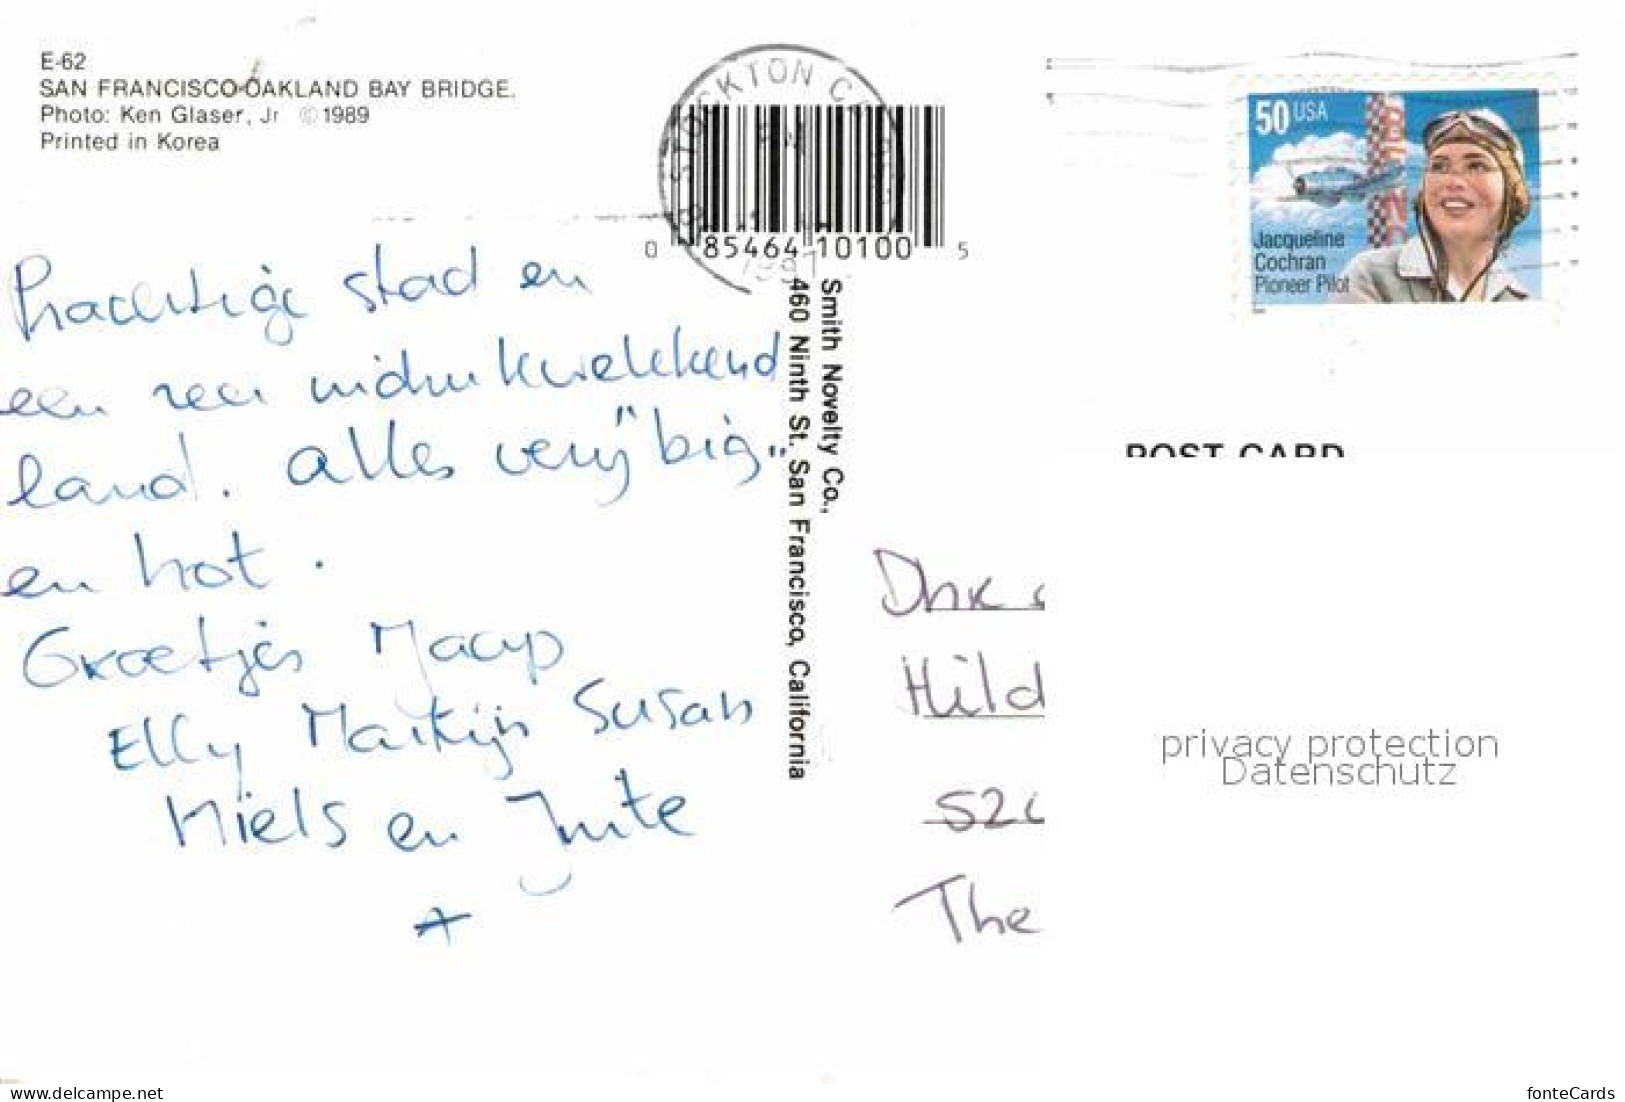 E-62
SAN FRANCISCO-OAKLAND BAY BRIDGE.
Photo: Ken Glaser, Jr ©1989
Printed in Korea
STOCKTON CA
1997
0 85464 10100 5
50 USA
Jacqueline
Cochran
Pioneer Pilot
Prachtige stad en
een zeer indrukwekkend
land. alles very "big"
en hot.
Groetjes Jaap
Elly Martijn Susan
Niels en Jutte
Smith Novelty Co.,
460 Ninth St. San Francisco, California
POST CARD
Dhr
Hild
52
The
privacy protection
Datenschutz
www.delcampe.net
fonteCards